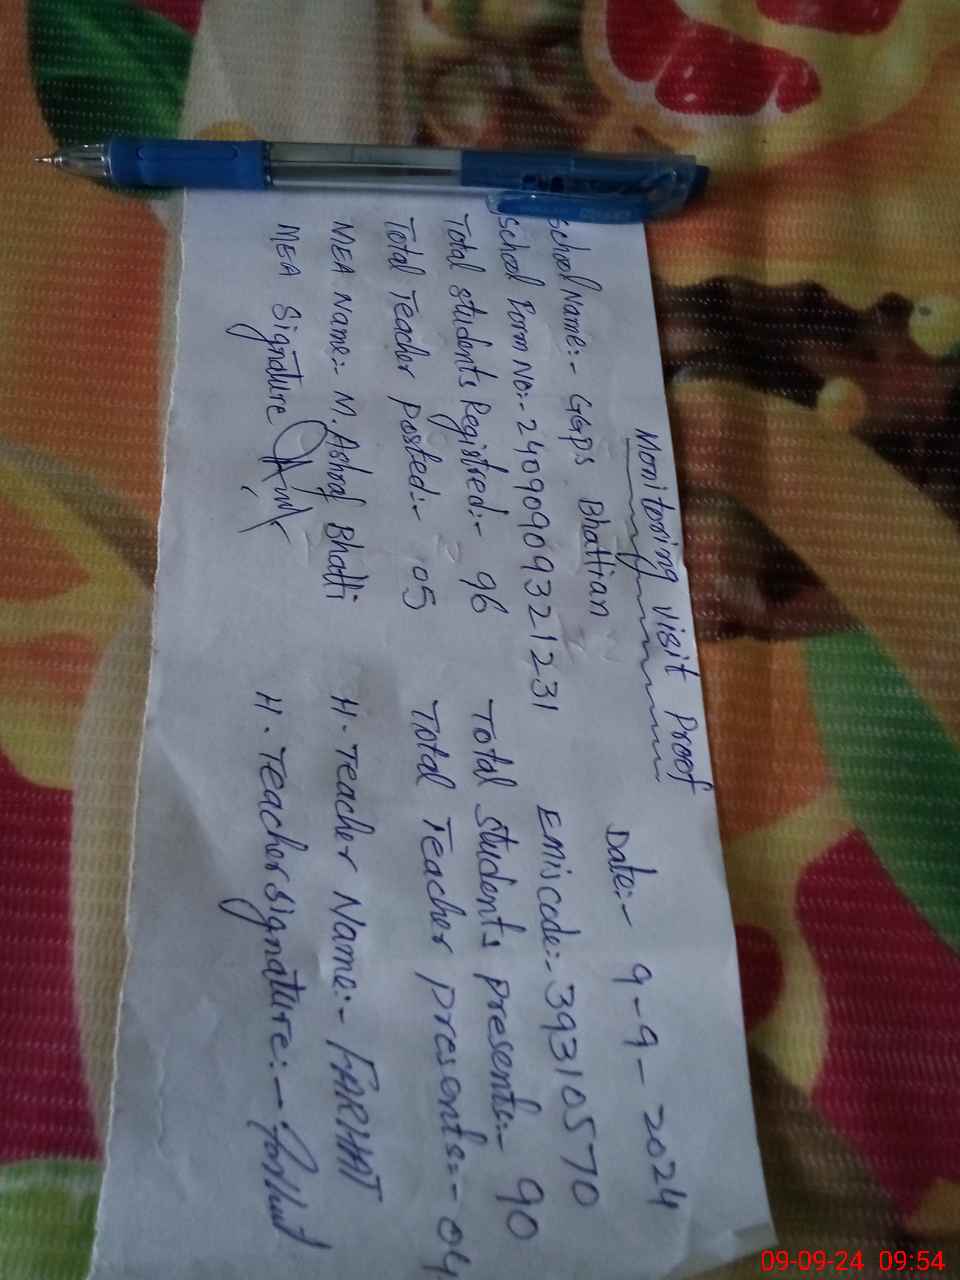 Monitoring Visit Proof
Date:- 9-9-2024
School Name:- GGPS Bhattian
School Form No:- 24090909321231 Emis code:- 39310570
Total Students Registred:- 96 Total Students Presents:- 90
Total Teacher Posted:- 05 Total Teacher Presents:- 04
MEA Name:- M. Ashraf Bhatti H. Teacher Name:- FARHAT
MEA Signature H. Teacher Signature:- Farhat
09-09-24 09:54